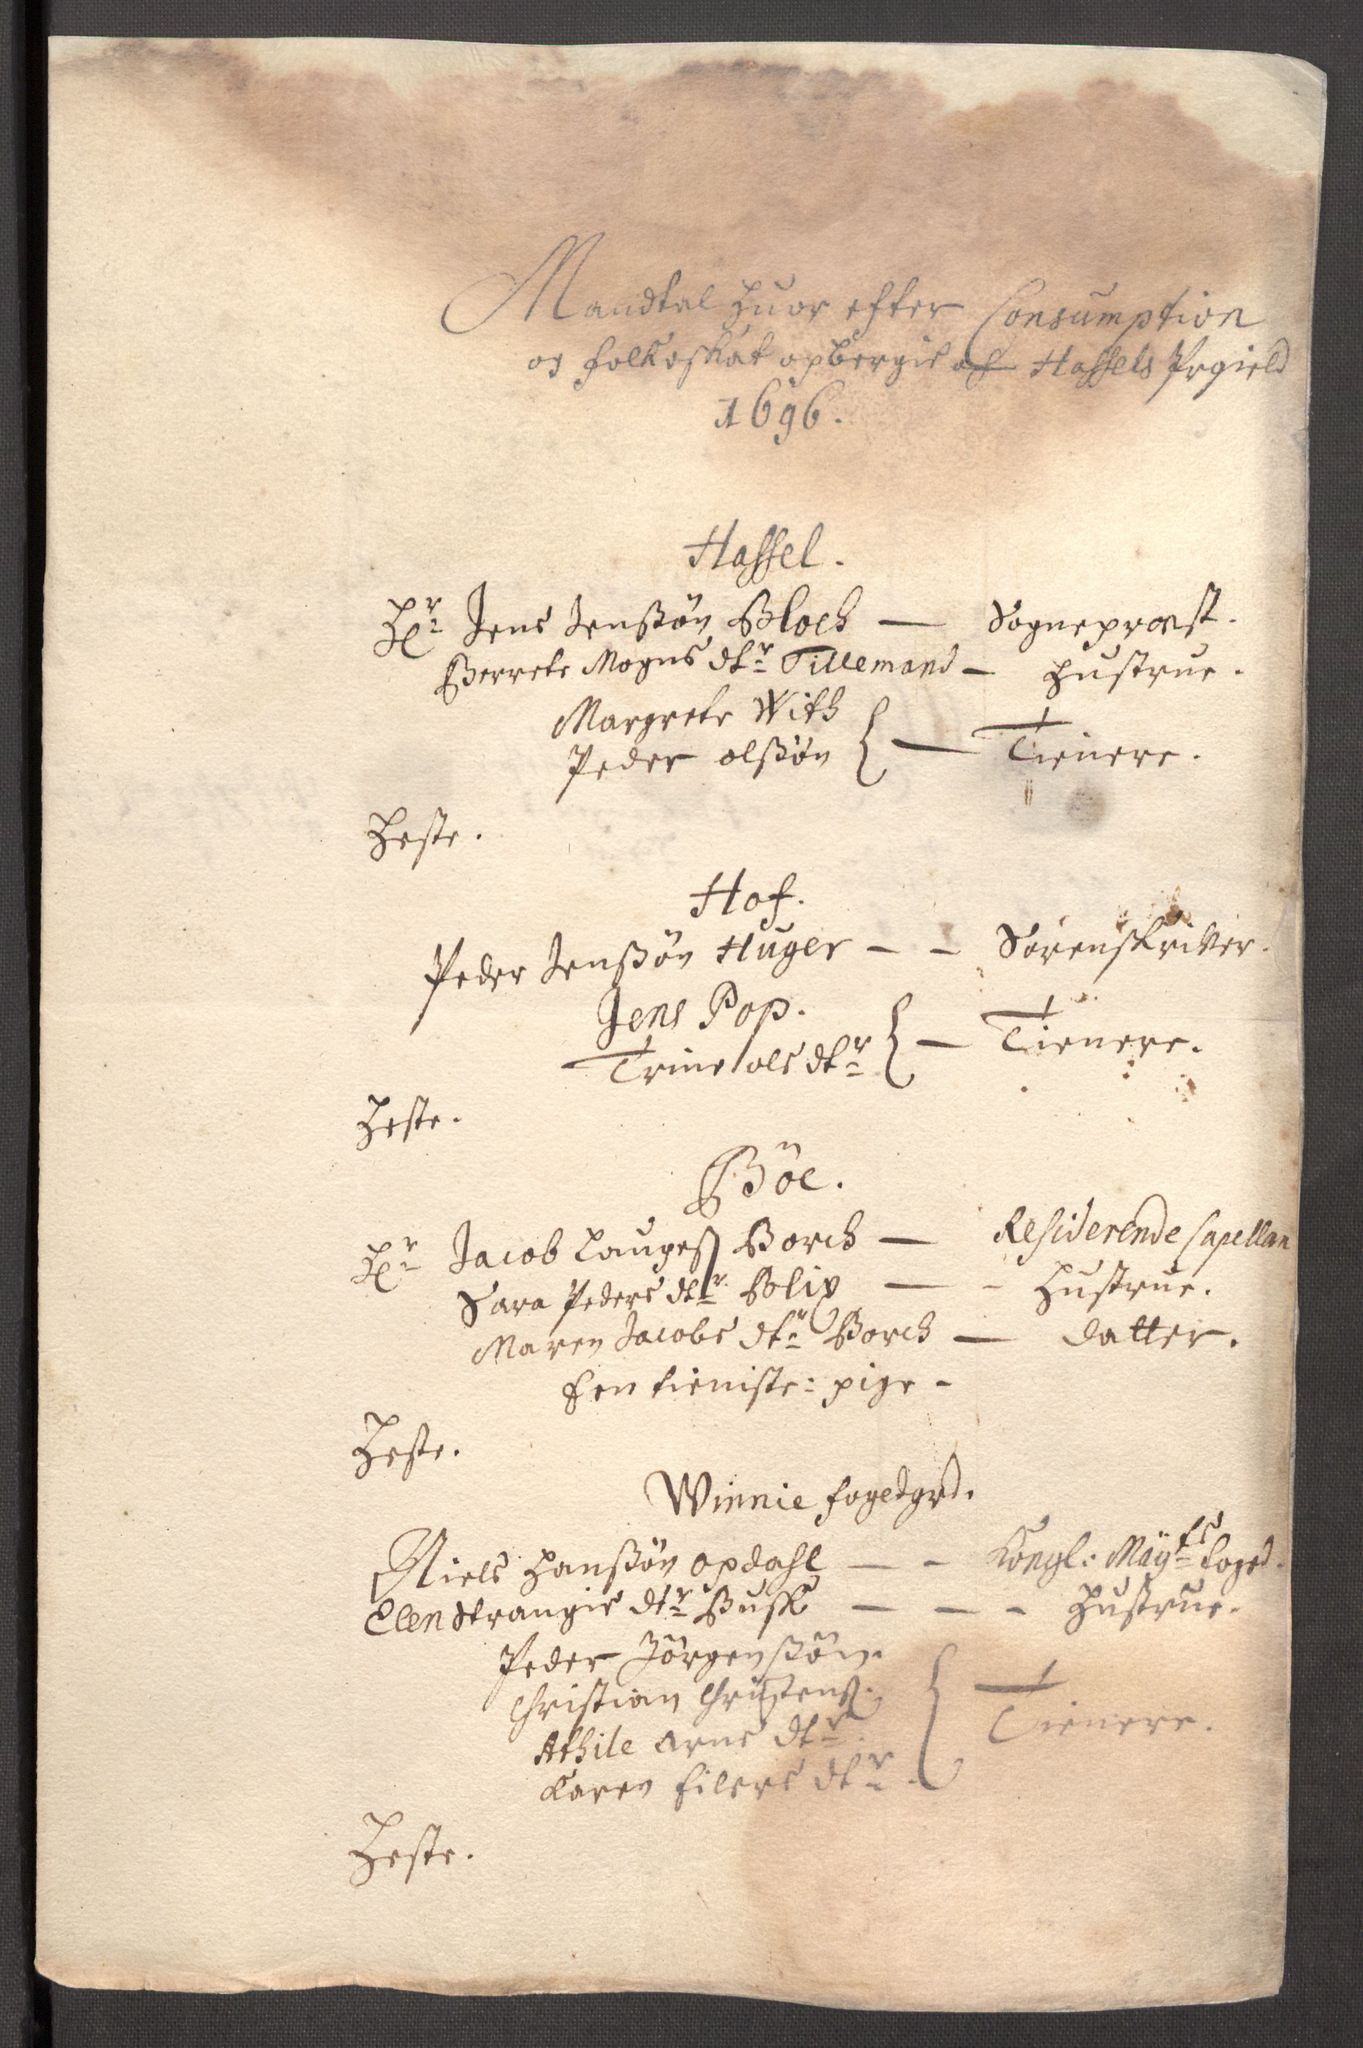 Mandtal huor efter Consumption
og folkeskat opbergis af Hassels Prgield
1696.
Hassel.
Hr Jens Jenßøn Bloch — Sognepræst.
Berrete Mogns dtr Tillemand — Hustrue.
Margrete With
Peder olßøn } — Tienere.
Heste.
Hof.
Peder Jenßøn Huger — — Sorenskriver.
Jens Pop.
Trine ols dtr } — Tienere.
Heste.
Böe.
Hr Jacob Laugeß Borch — Residerende Capellan
Sara Peders dtr Blix — — Hustrue.
Maren Jacobs dtr Borch — datter.
Een tieniste: pige -
Heste.
Winnie fogedgrd.
Niels Hanßøn opdahl — — Kongl: Maÿts foged.
Elen Strangis dtr Busk — — — Hustrue.
Peder Jörgenßön.
Christian Christenß.
Athile Arns dtr.
Karen Eilers dtr. } Tienere.
Heste.